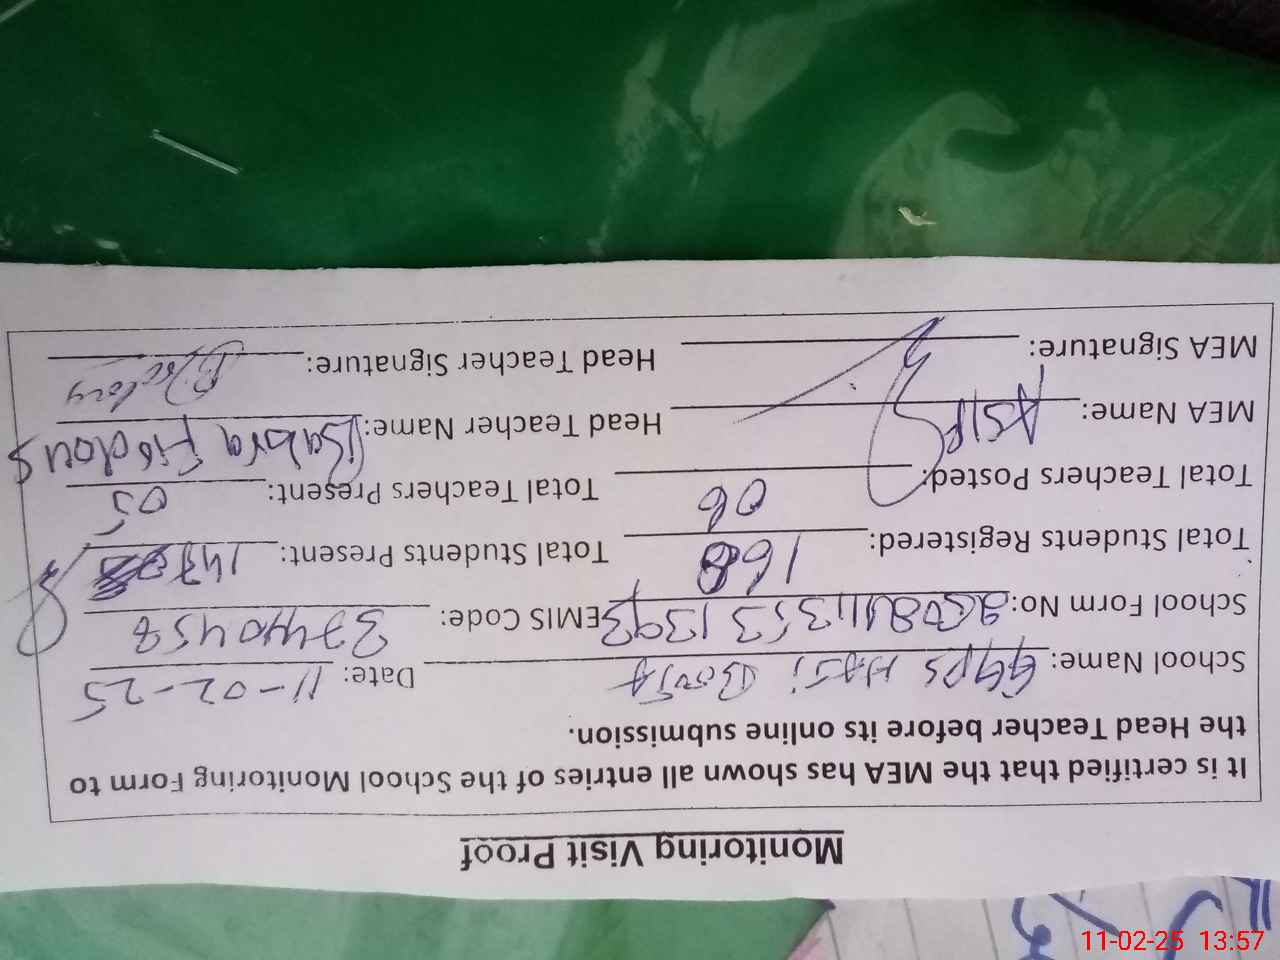 Monitoring Visit Proof
It is certified that the MEA has shown all entries of the School Monitoring Form to
the Head Teacher before its online submission.
School Name: GGPS HAJI Date: 11-02-25
School Form No: EMIS Code: 37440458
Total Students Registered: 168 Total Students Present: 147
Total Teachers Posted: 06 Total Teachers Present: 05
MEA Name: ASIF Head Teacher Name: Babra Firdous
MEA Signature: Head Teacher Signature:
11-02-25 13:57